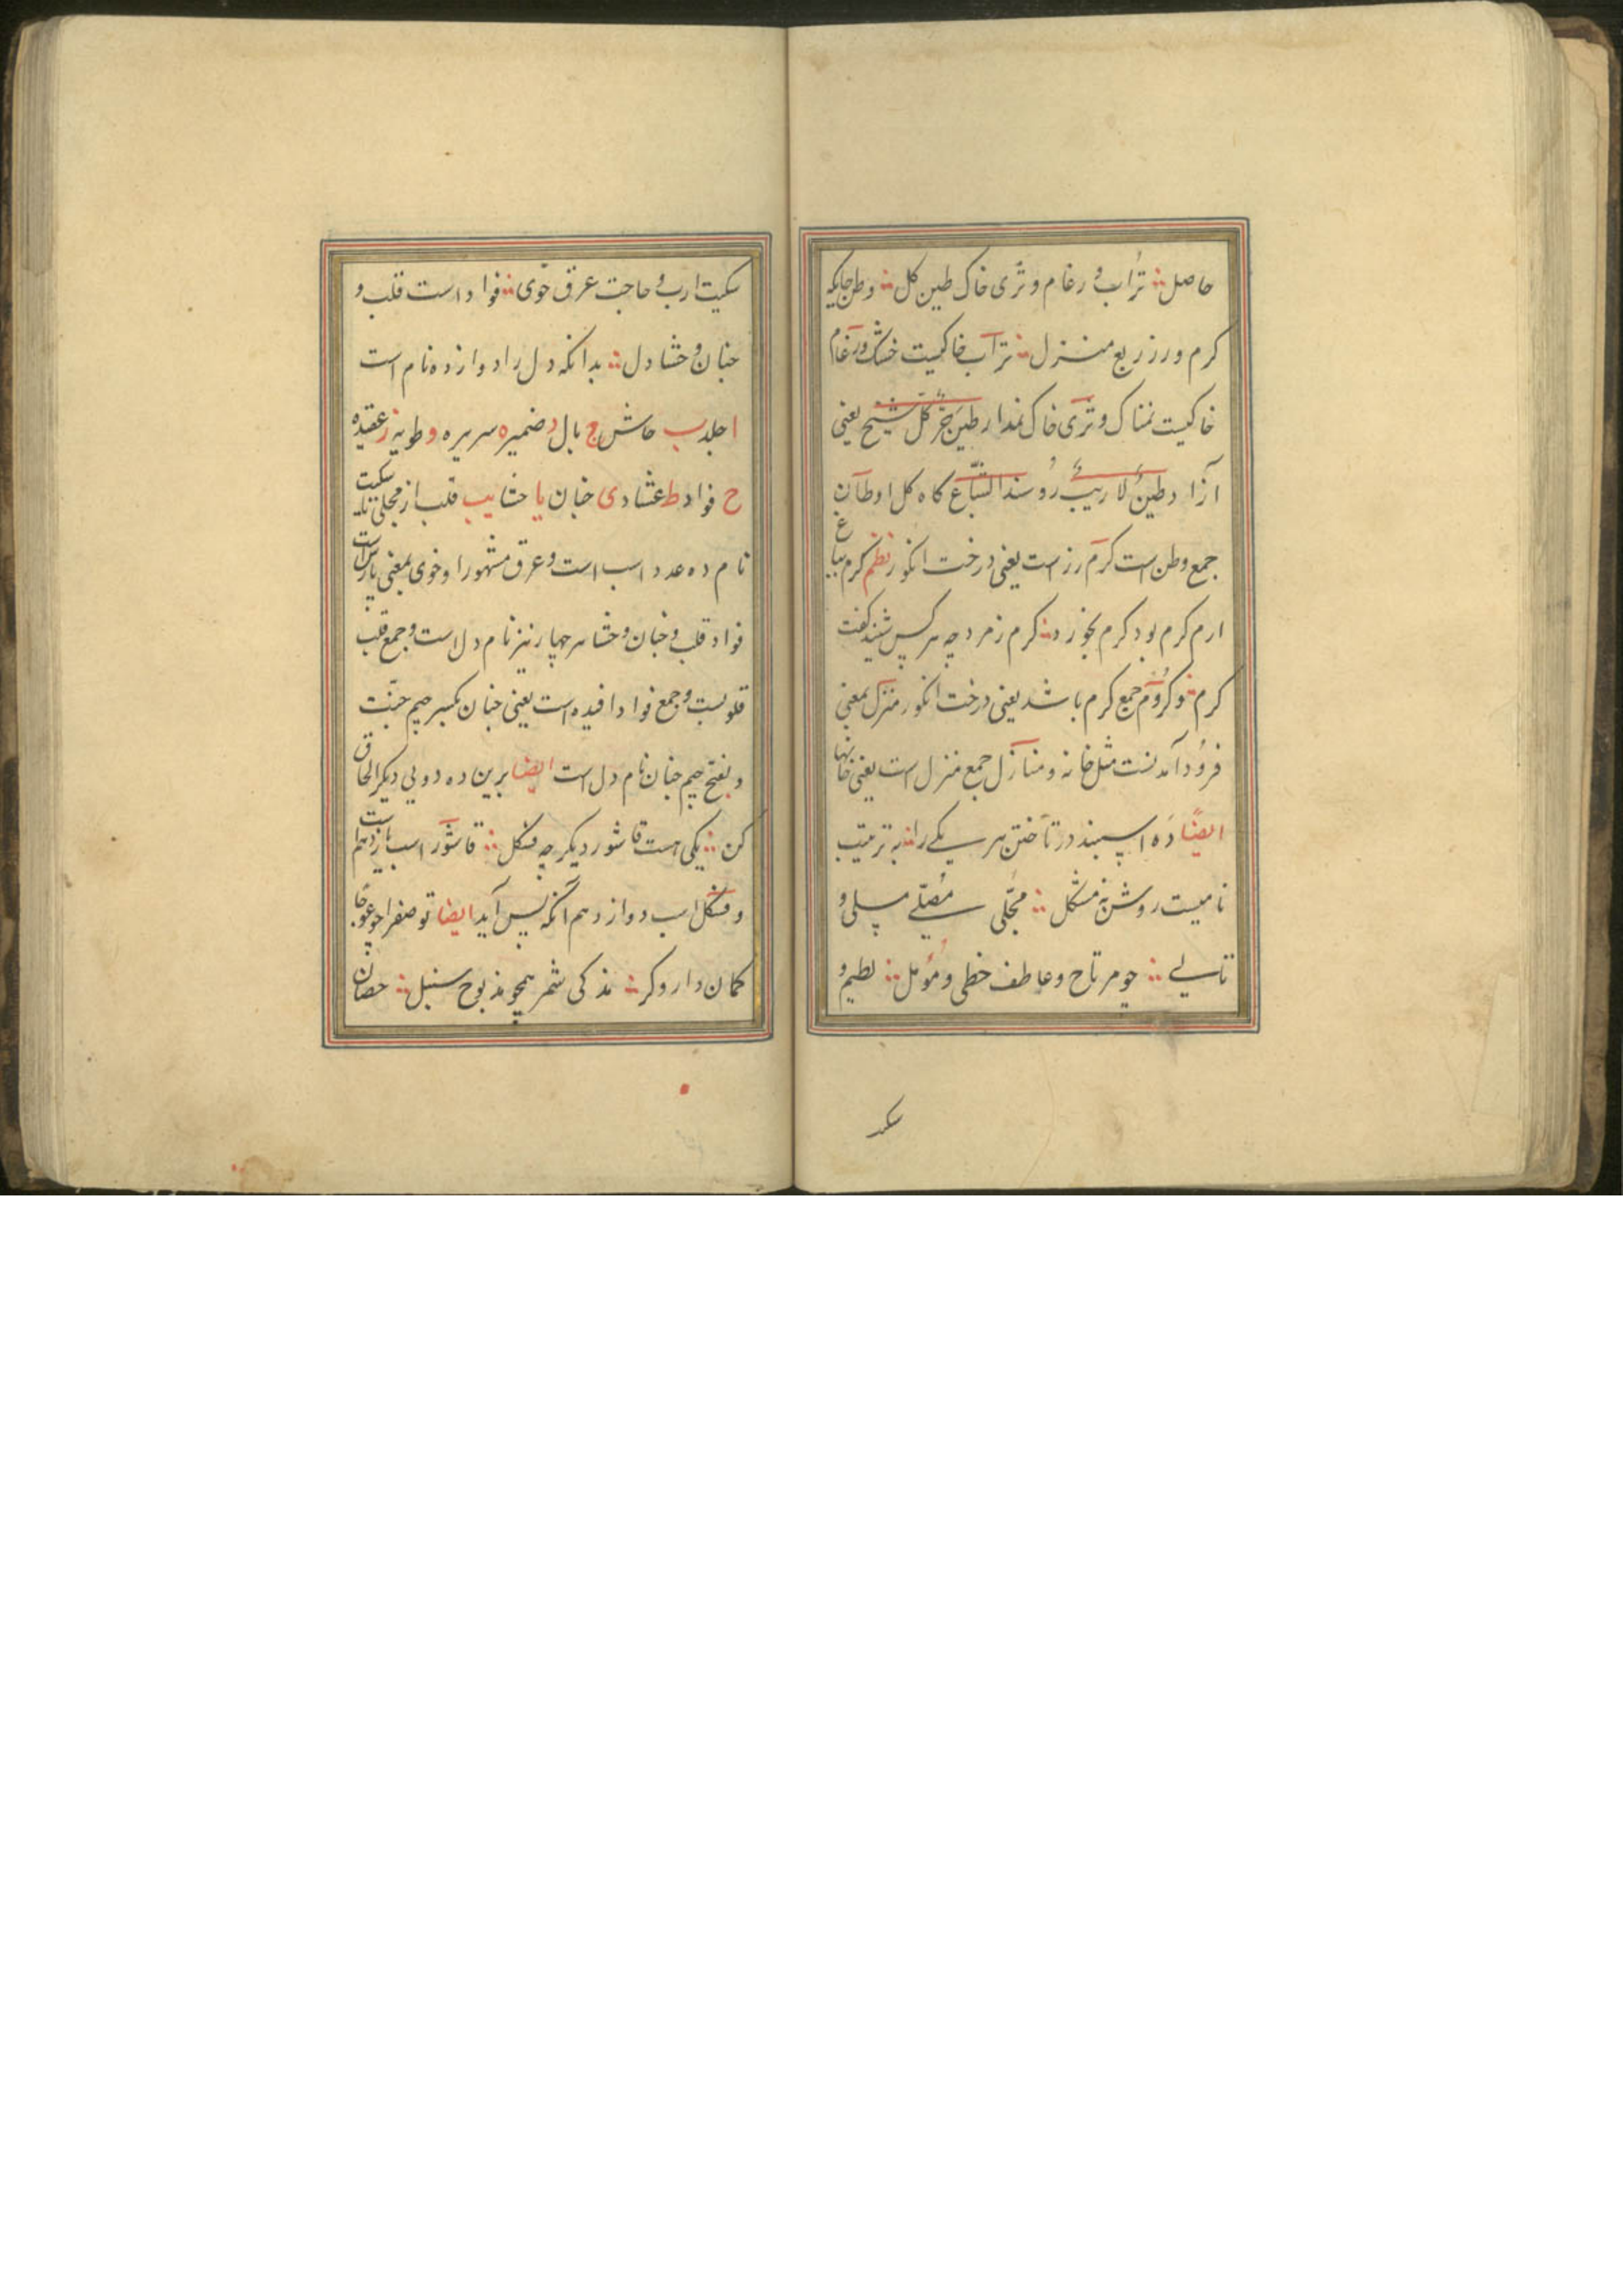 حاصل ∴ تراب و رغام و ثری خاک طین کل ∴ وطن جایکه
کرم و رز ربع منزل ∴ تراب خاکیست خشک و رغام
خاکیست نمناک و ثری خاک نمدار طین یعنی
آزاد طین لا ریب کاه کل اوطان
جمع وطن است کرم رز است یعنی درخت انکور نظم کرم بباغ
ارم کرم بود کرم بخورد ∴ کرم زمرد چه هر کس شنید کفت
کرم ∴ و کروم جمع کرم باشد یعنی درخت انکور منزل بمعنی
فرود آمدنست مثل خانه و منازل جمع منزل است یعنی خانها
ایضا ده اسپند در تاختن هر یکی را ∴ به ترتیب
نامیست روشن نه مشکل ∴ مجلی مصلی مسلی و
تالی ∴ چو مرتاح و عاطف حظی و مؤمل ∴ لطیم و
سکیت ارب و حاجت عرق خوی ∴ فواد است قلب و
جنان و حشا دل ∴ بدانکه دل را دوازده نام است
ا جلد ب جاش ج بال د ضمیر ه سریره و طویه ز عقیده
ح فواد ط ی جنان یا حشا یب قلب از مجلی تا سکیت
نام ده عدد اسب است و عرق مشهور را و خوی بمعنی
فواد قلب و جنان و حشا هر چهار نیز نام دل است و جمع قلب
قلوبست و جمع فواد افیده است یعنی جنان بکسر جیم جنت
و بفتح جیم جنان نام دل است ایضا برین ده دویی دیکر الحاق
کن ∴ یکی هست قاشور دیکر چه فسکل ∴ قاشور اسب یازدهم است
و فسکل اسب دوازدهم آنکه پس آید ایضا تو صفرا چو عوجا
کمان دار و کر ∴ مذکی شمر همچو مذبوح سنبل ∴ حصان